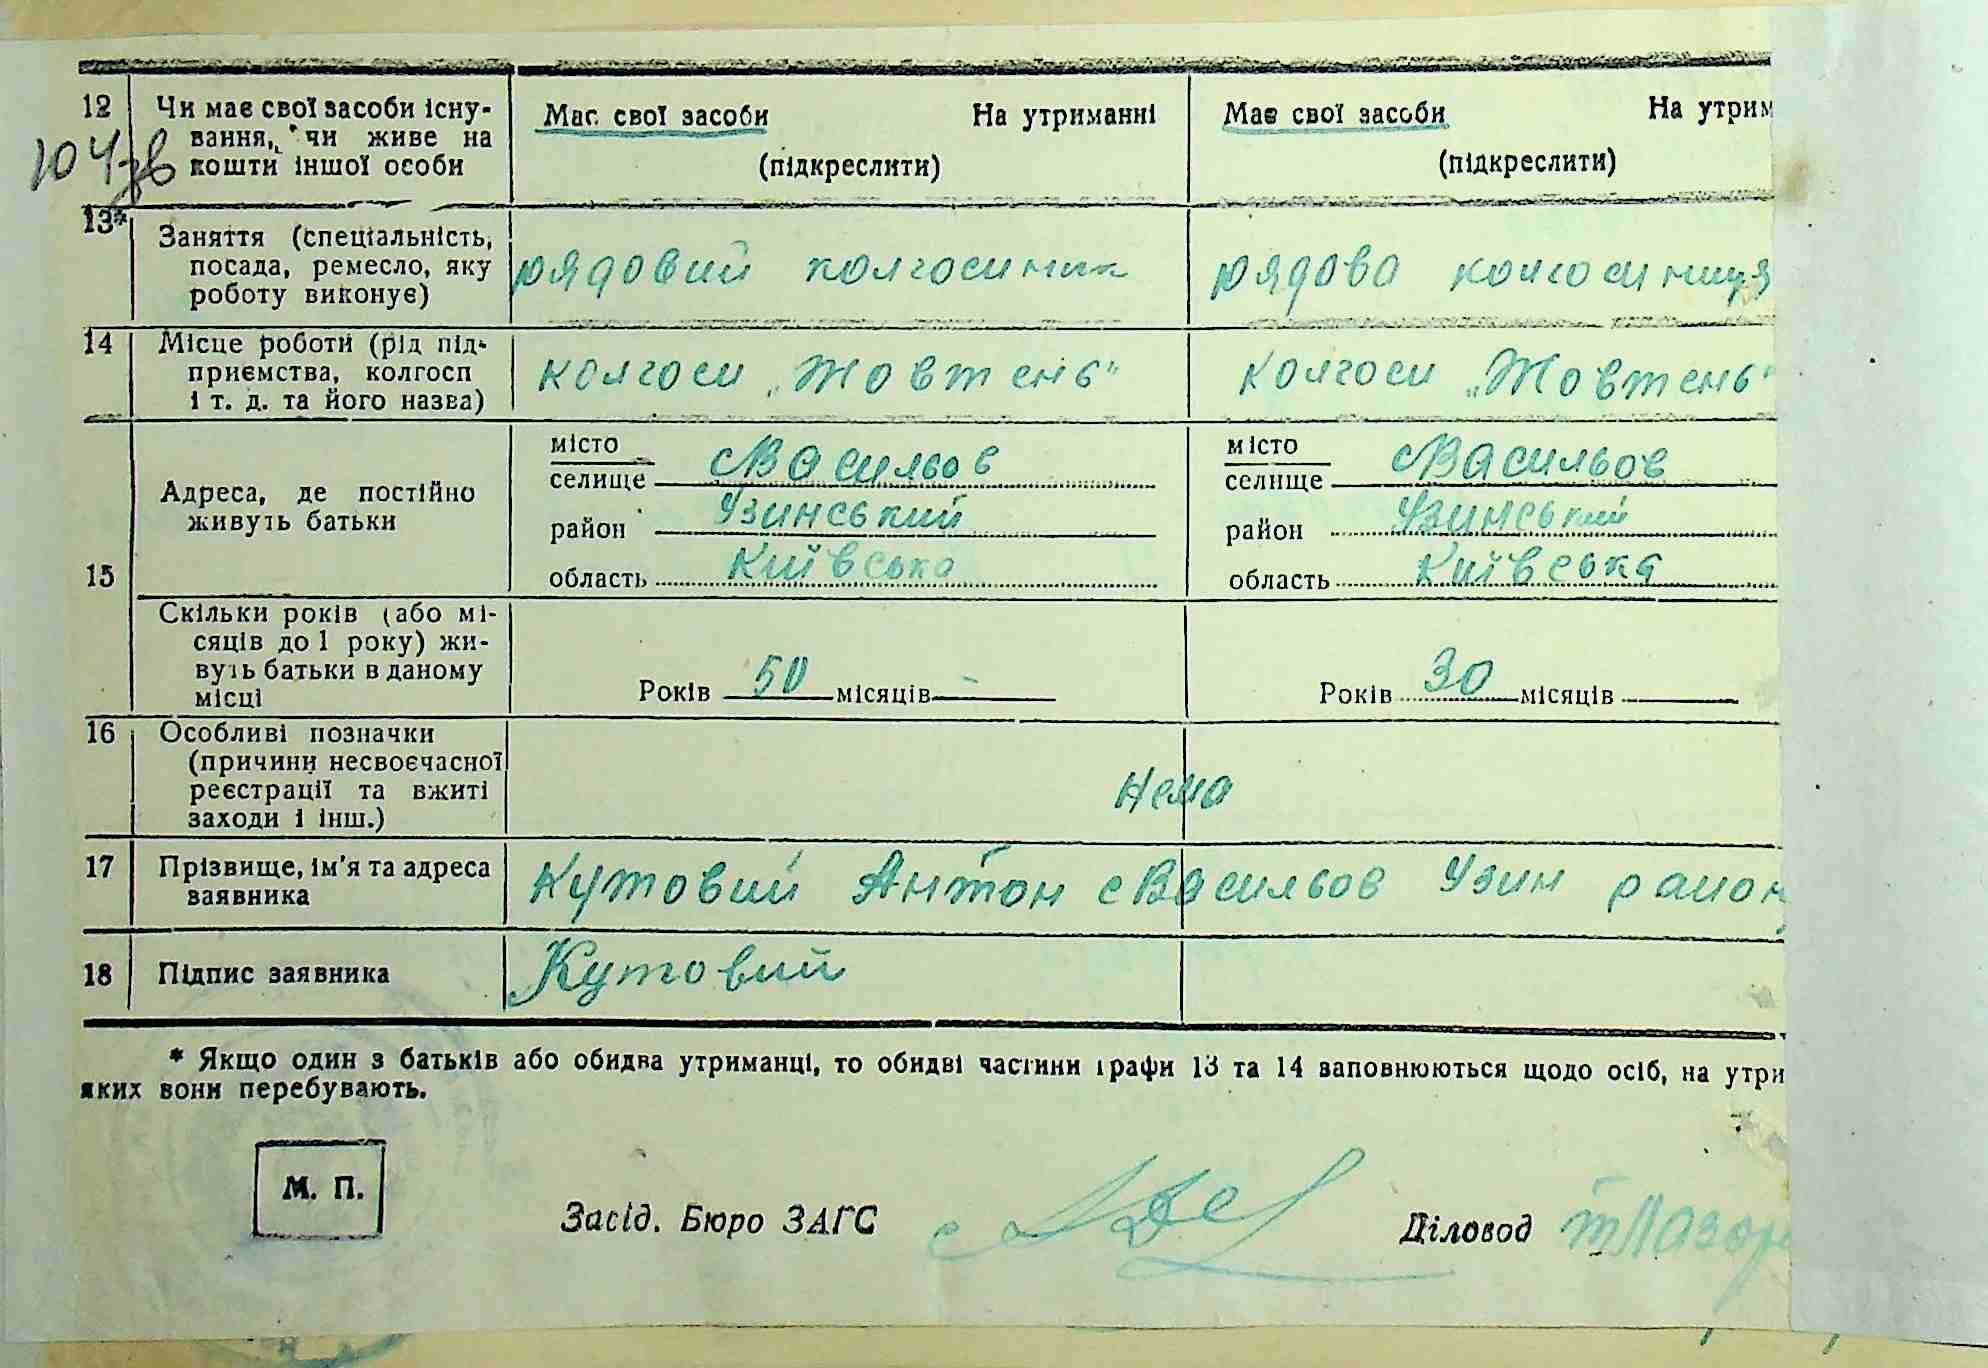 12 Чи має свої засоби існу- Має свої засоби На утриманні Має свої засоби На утрим
104зв вання, чи живе на
кошти іншої особи (підкреслити) (підкреслити)
13* Заняття (спеціальність,
посада, ремесло, яку рядовий колгоспник рядова колгоспниця
роботу виконує)
14 Місце роботи (рід під-
приємства, колгосп колгосп „Жовтень" колгосп „Жовтень"
і т. д. та його назва)
місто місто
Адреса, де постійно селище с Василів селище с Василів
живуть батьки район Узинський район Узинський
15 область Київська область Київська
Скільки років (або мі-
сяців до 1 року) жи-
вуть батьки в даному Років 50 місяців - Років 30 місяців
місці
16 Особливі позначки
(причини несвоєчасної
реєстрації та вжиті нема
заходи і інш.)
17 Прізвище, ім'я та адреса Кутовий Антон с Васильов Узин район
заявника
18 Підпис заявника Кутовий
* Якщо один з батьків або обидва утриманці, то обидві частини графи 13 та 14 заповнюються щодо осіб, на утри
яких вони перебувають.
М. П.
Засід. Бюро ЗАГС Діловод